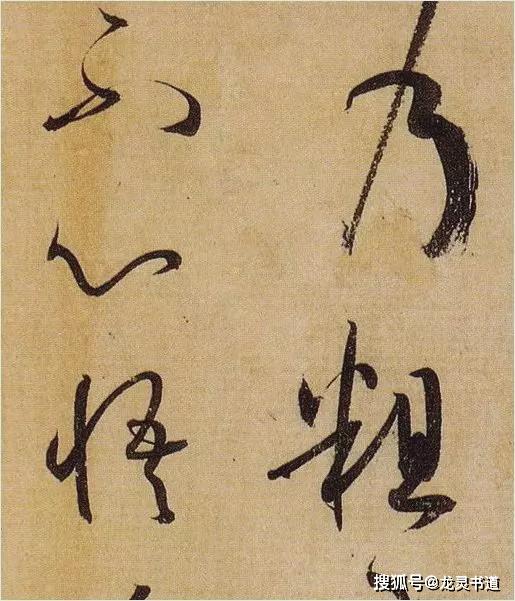 乃粗
不心悟
搜狐号@龙灵书道